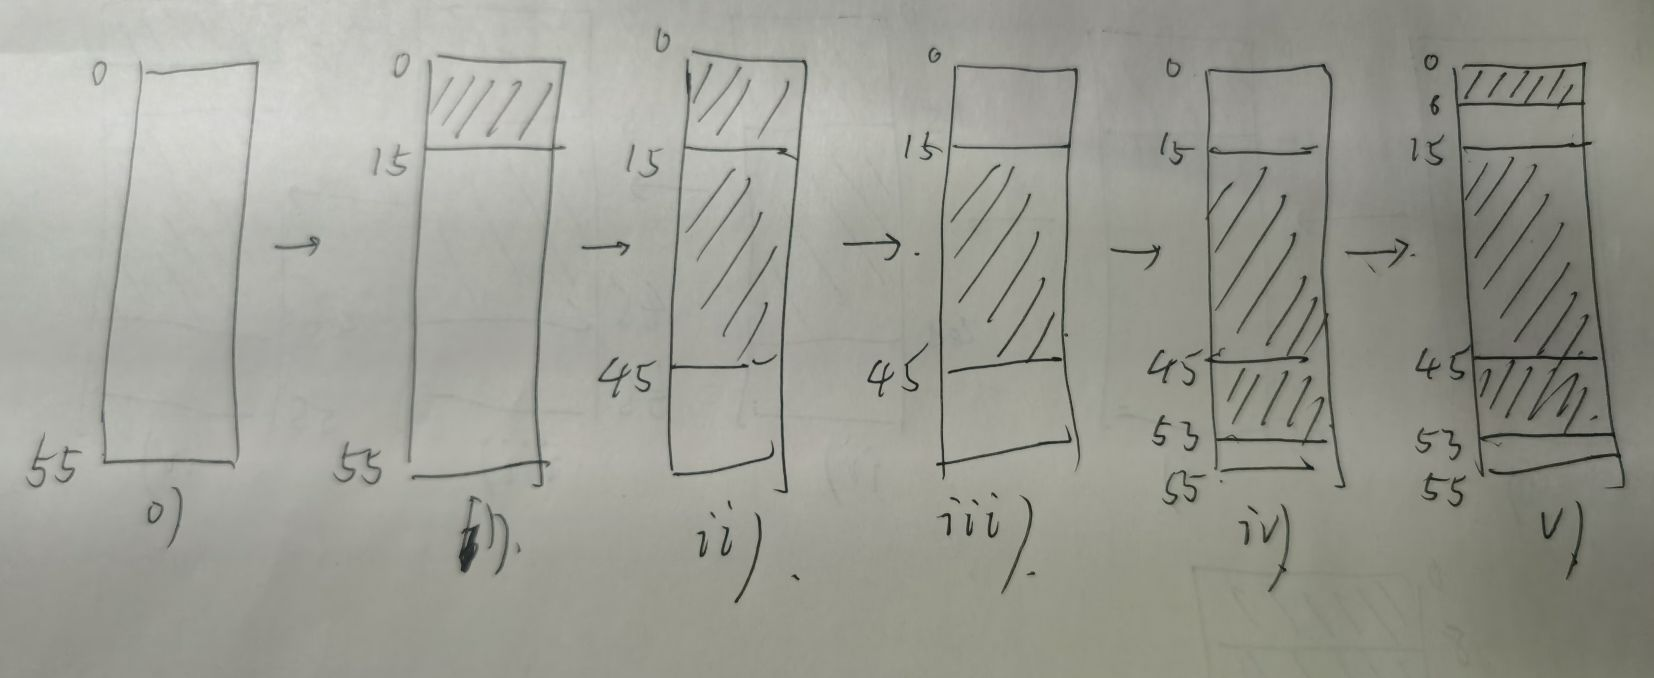 0
55
0)
0
15
55
i).
0
15
45
ii).
0
15
45
iii).
0
15
45
53
55
iv)
0
6
15
45
53
55
v)